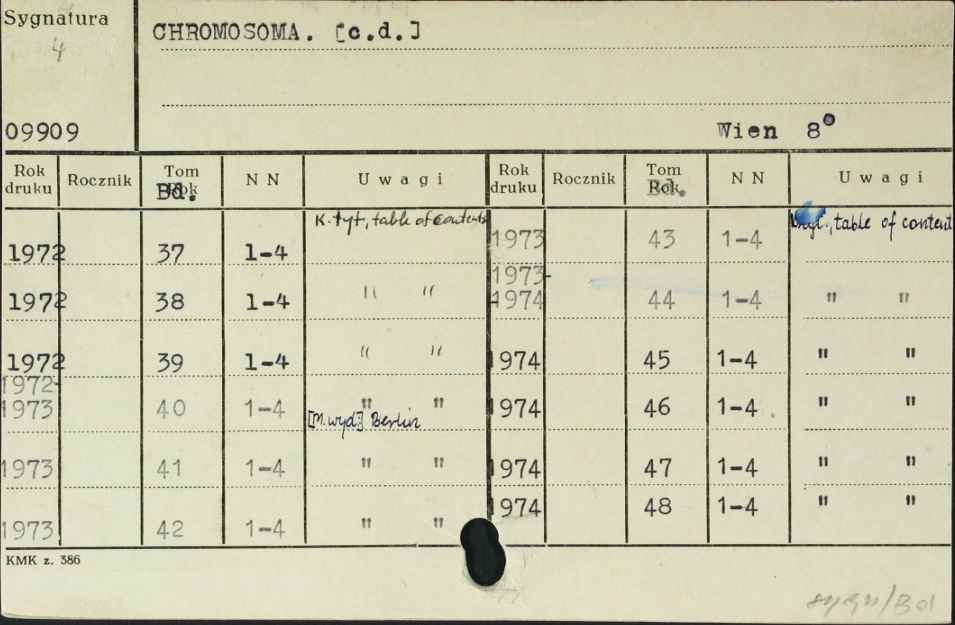 Sygnatura
4
CHROMOSOMA. [c.d.]
09909
Wien 8°
Rok druku Rocznik Tom Rok Bd. NN Uwagi Rok druku Rocznik Tom Rok Bd. NN Uwagi
K. tyt., table of contents
1972 37 1-4
1972 38 1-4 " "
1972 39 1-4 " "
1972-
1973 40 1-4 " "
[M. wyd.] Berlin
1973 41 1-4 " "
1973 42 1-4 " "
tyt., table of content
1973 43 1-4
1973-
1974 44 1-4 " "
1974 45 1-4 " "
1974 46 1-4 " "
1974 47 1-4 " "
1974 48 1-4 " "
KMK z. 386